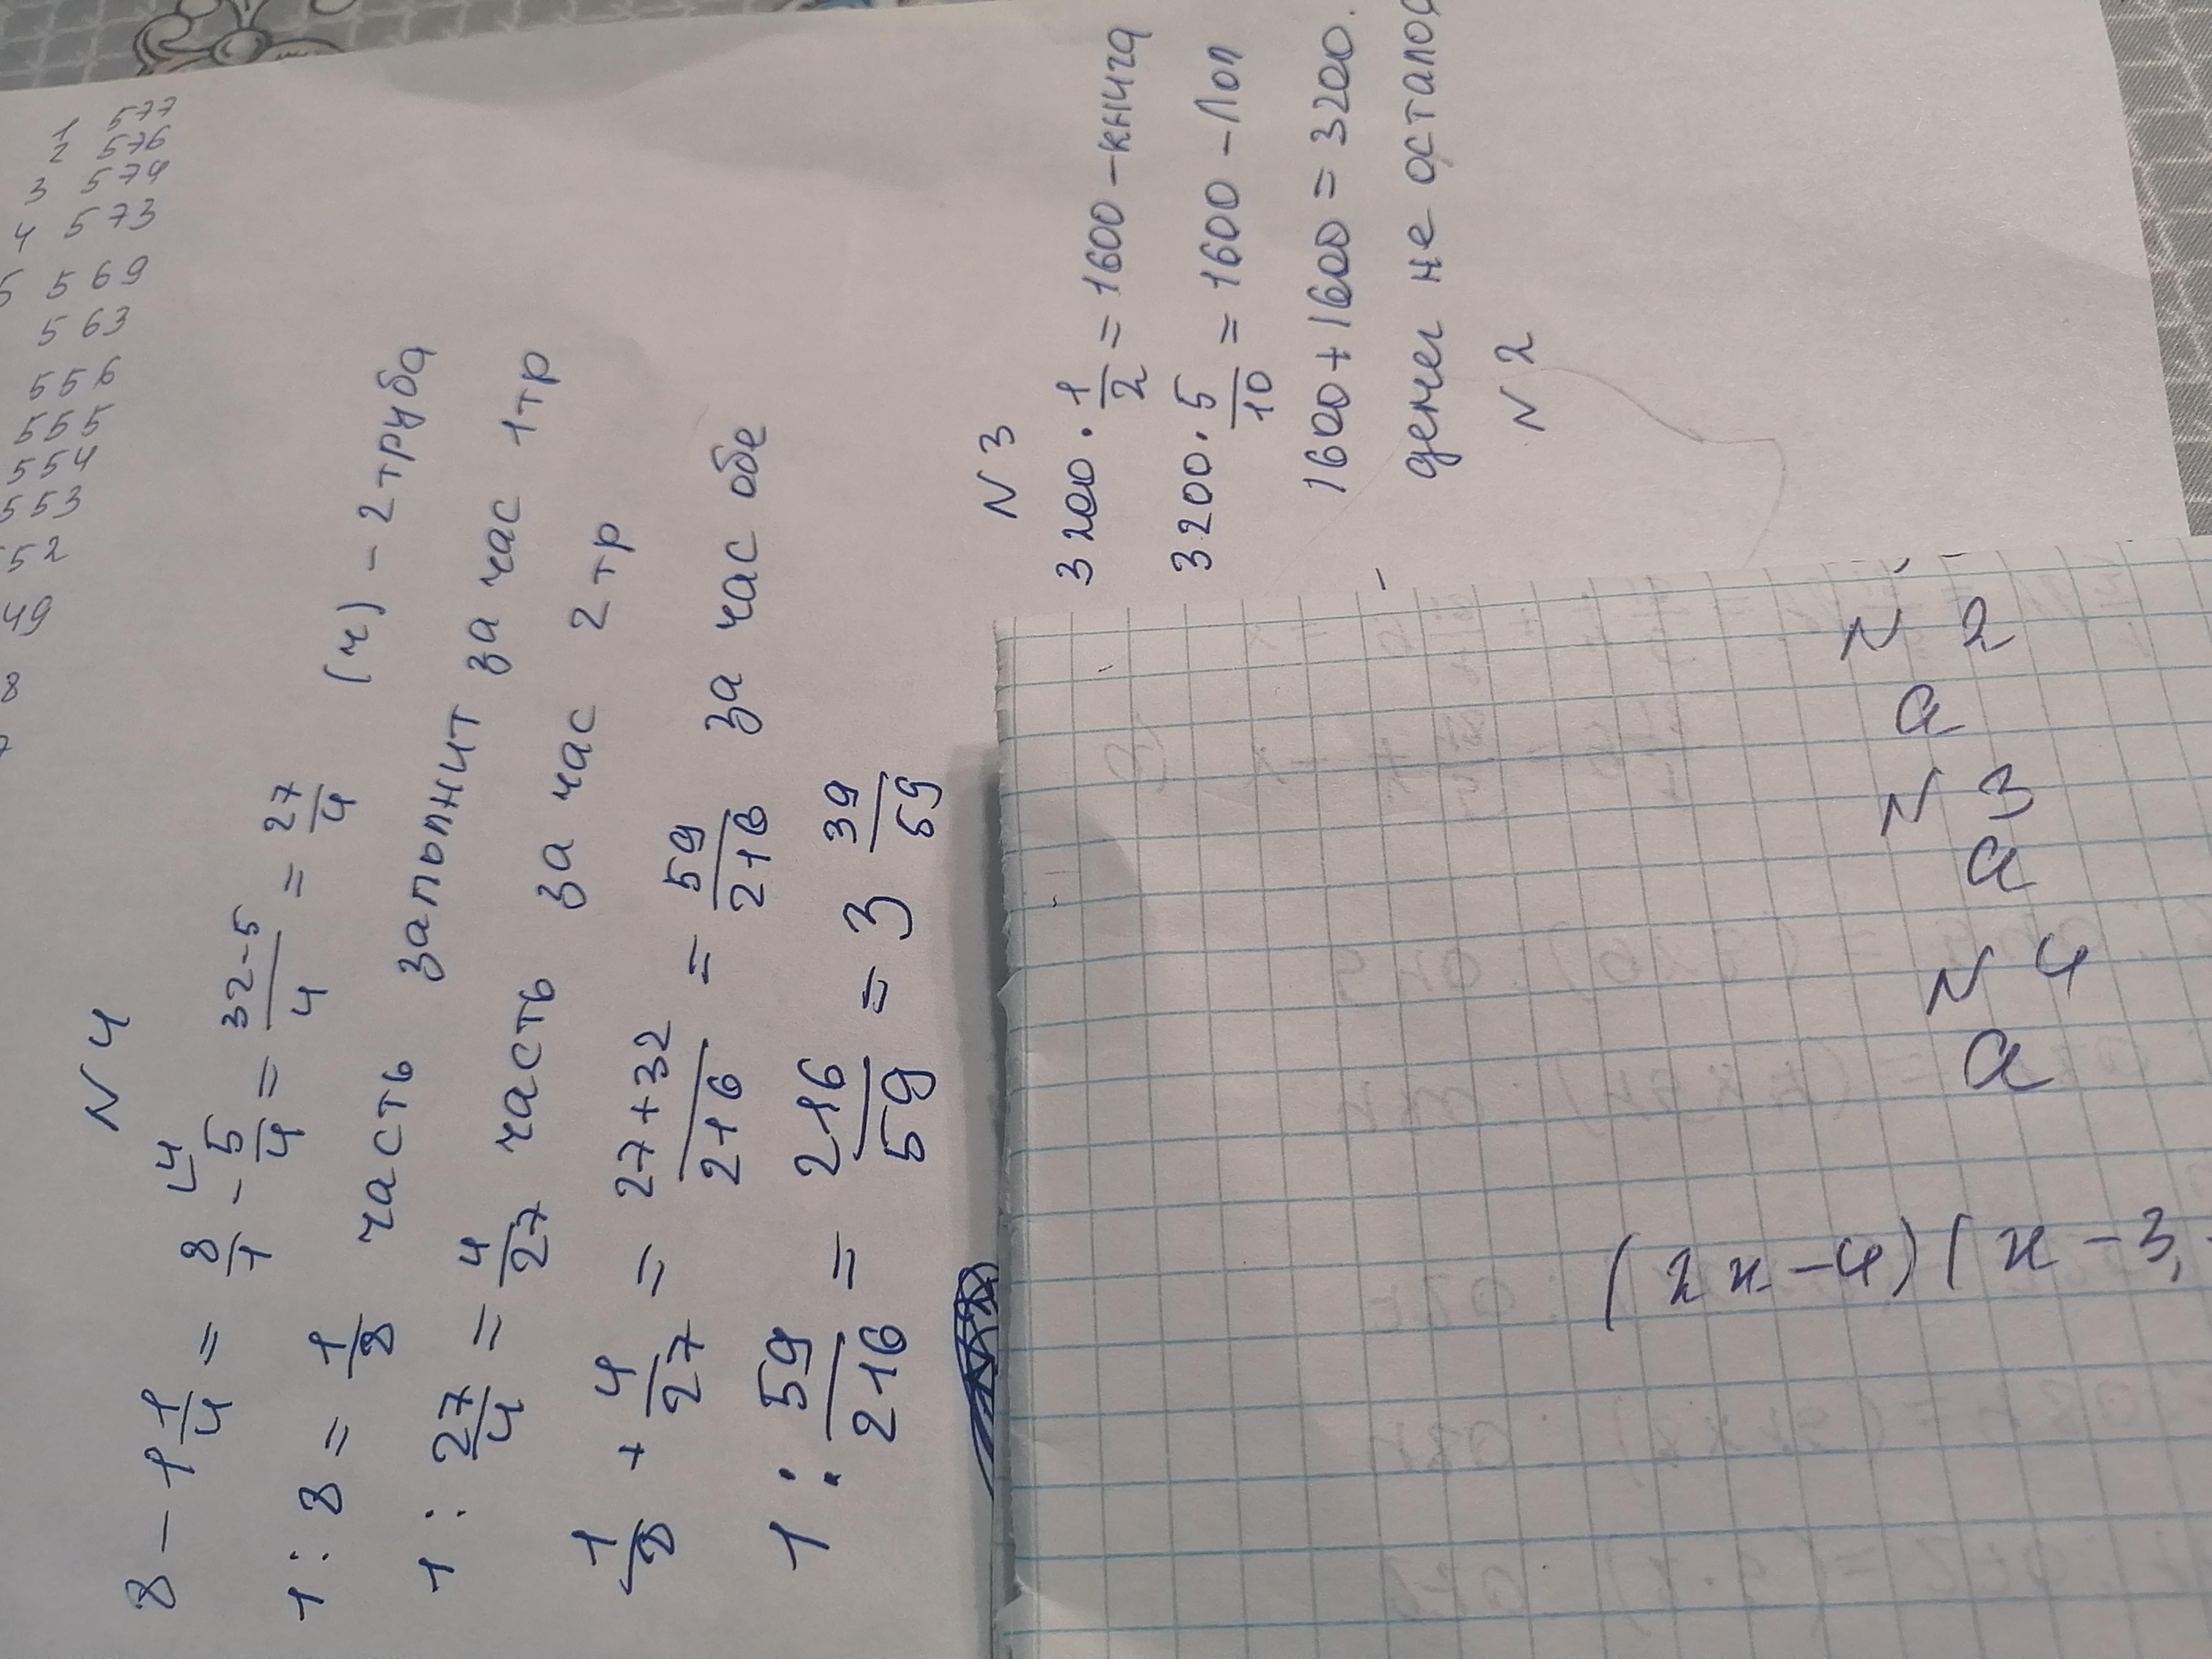 1 577
2 576
3 574
4 573
5 569
563
556
555
554
553
52
49
8
7
N 4
8 - 1 1/4 = 8/1 - 5/4 = 32-5/4 = 27/4 (ч) - 2 труба
4
1 : 8 = 1/8 часть запольнит за час 1 тр
1 : 27/4 = 4/27 часть за час 2 тр
1/8 + 4/27 = 27+32/216 = 59/216 за час обе
1 : 59/216 = 216/59 = 3 39/59
N 3
3200 · 1/2 = 1600 - книга
3200 · 5/10 = 1600 - Лоп
1600 + 1600 = 3200.
денег не остало
N 2
N 2
а
N 3
а
N 4
а
(2х-4)(х-3,